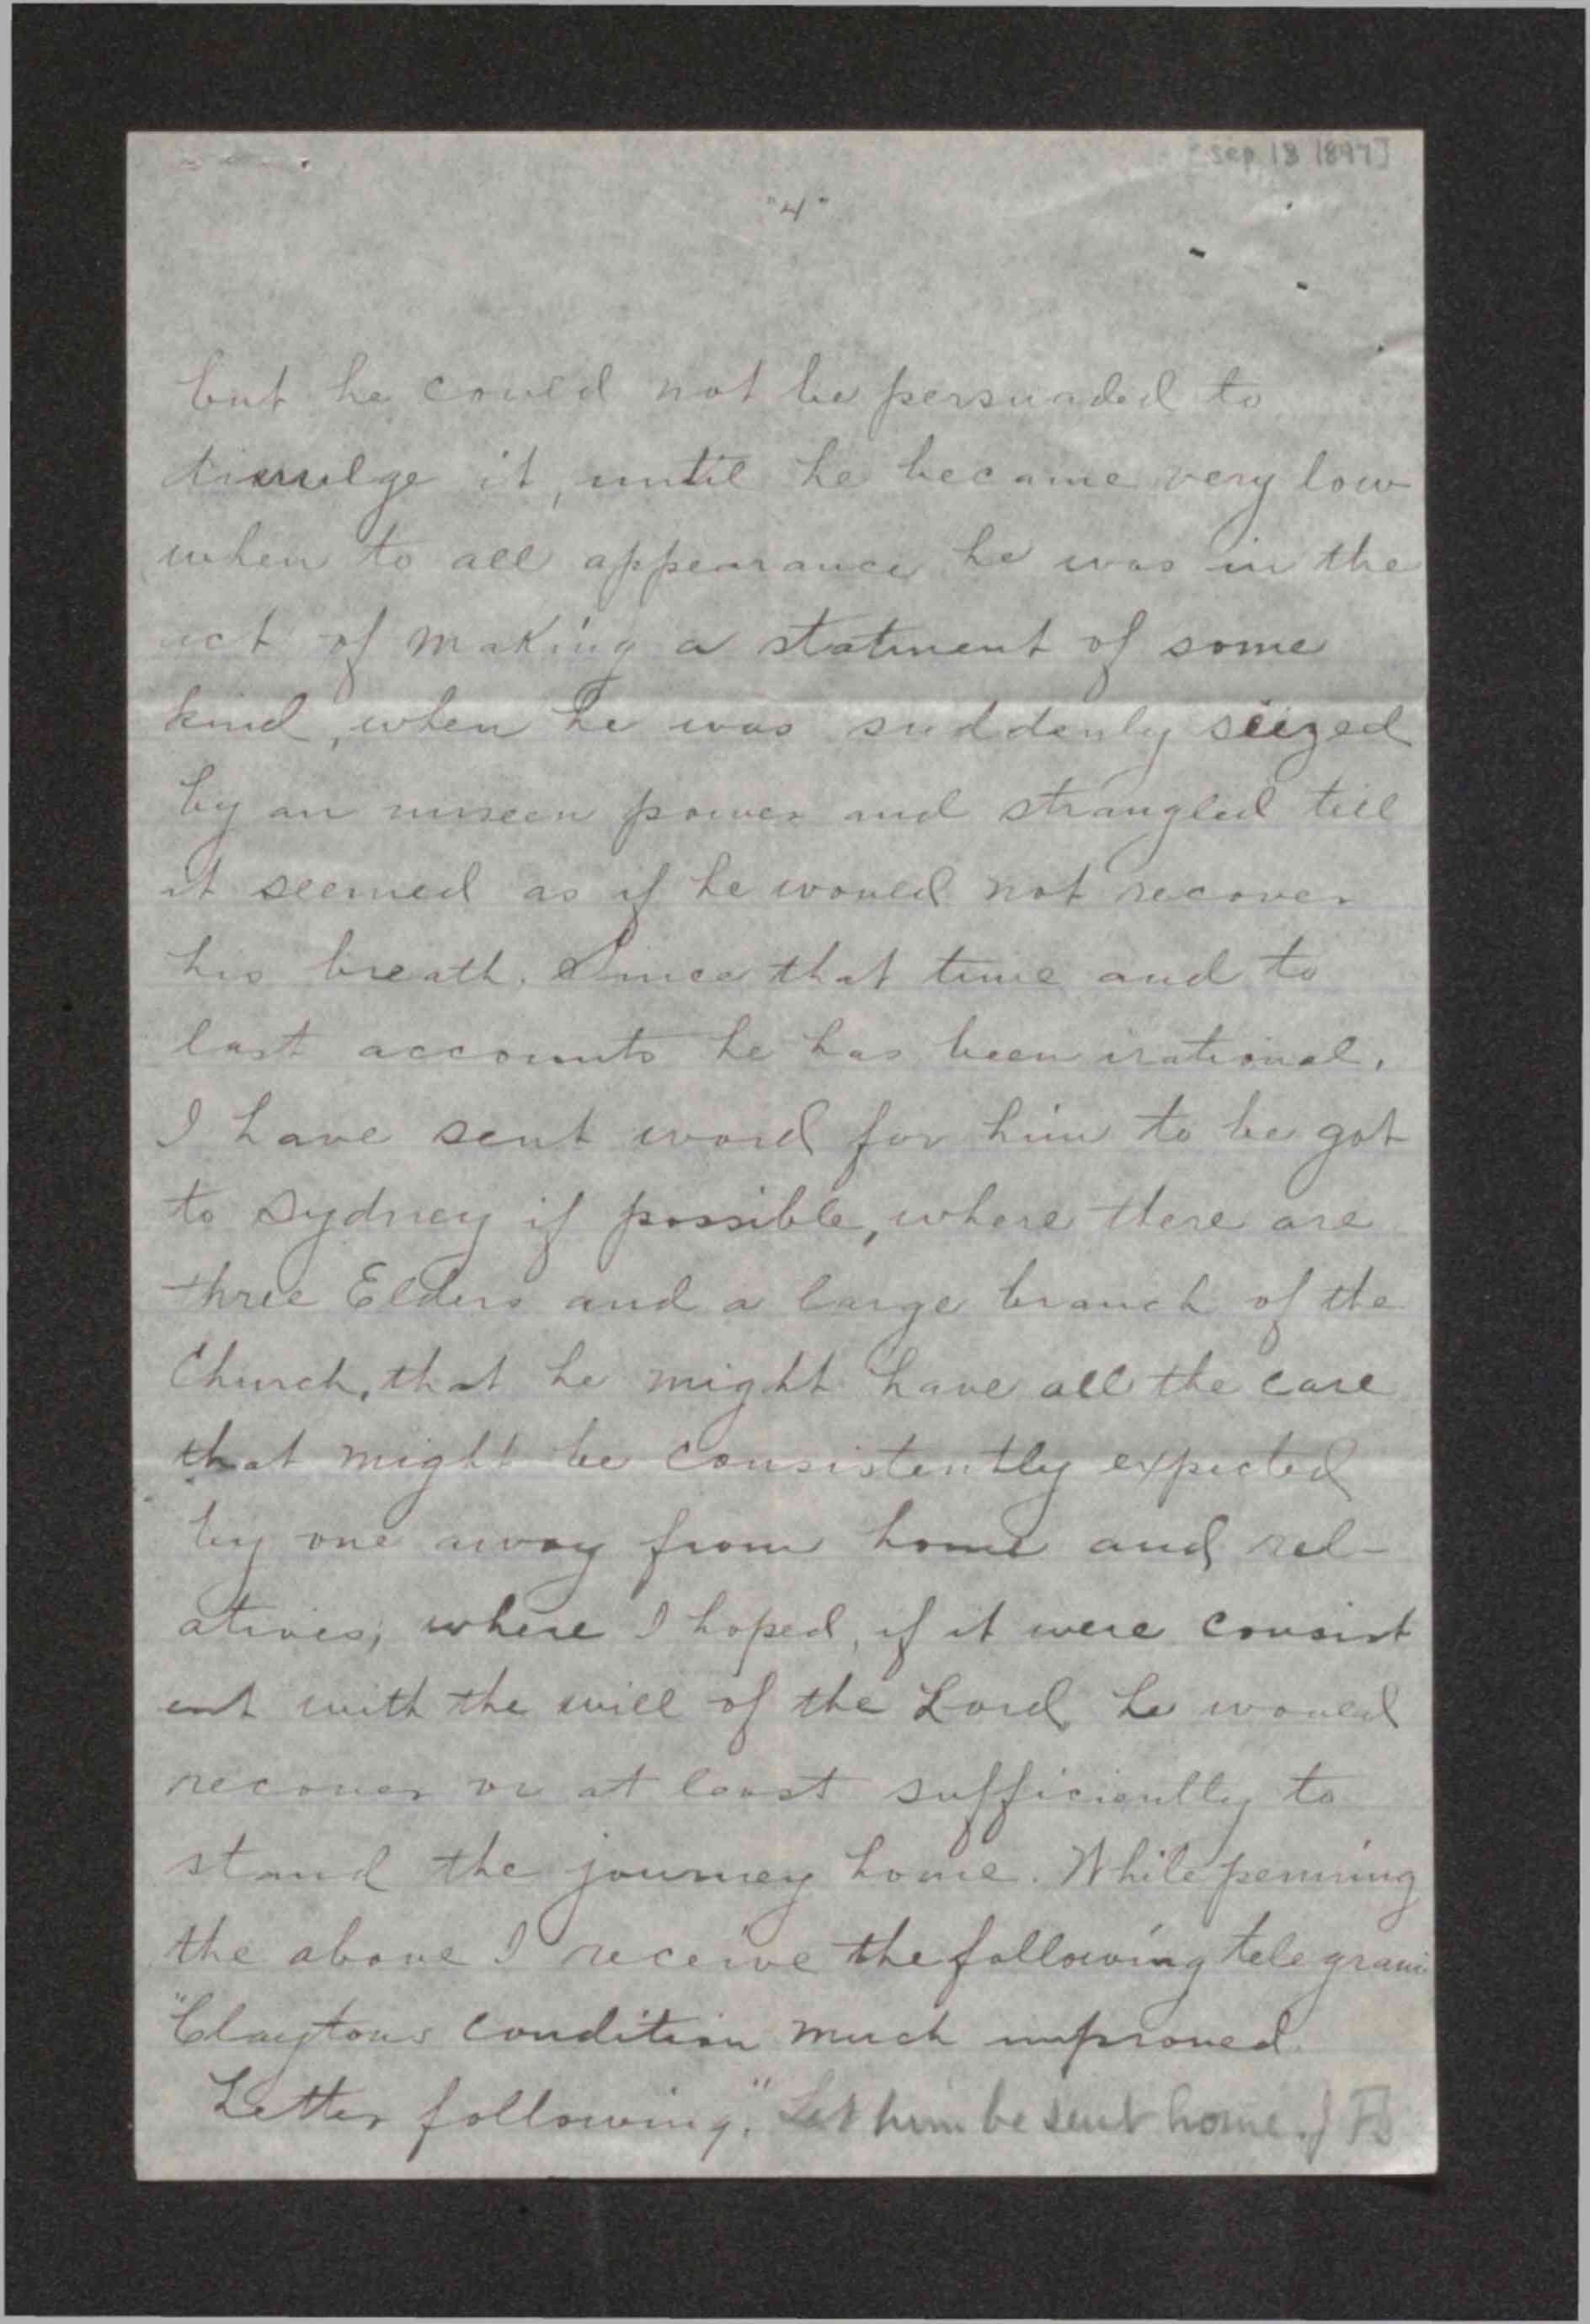 [Sep 18 1897]
"4"
but he could not be persuaded to
divulge it, until he became very low
when to all appearance he was in the
act of making a statment of some
kind, when he was suddenly seized
by an unseen power and strangled till
it seemed as if he would not recover
his breath. Since that time and to
last accounts he has been irational.
I have sent word for him to be got
to Sydney if possible, where there are
three Elders and a large branch of the
Church, that he might have all the care
that might be consistently expected
by one away from home and rel-
atives, where I hoped, if it were consist
ent with the will of the Lord he would
recover or at least sufficiently to
stand the journey home. While penning
the above I receive the following telegram
"Claytons condition much improved
Letter following." Let him be sent home. J F S